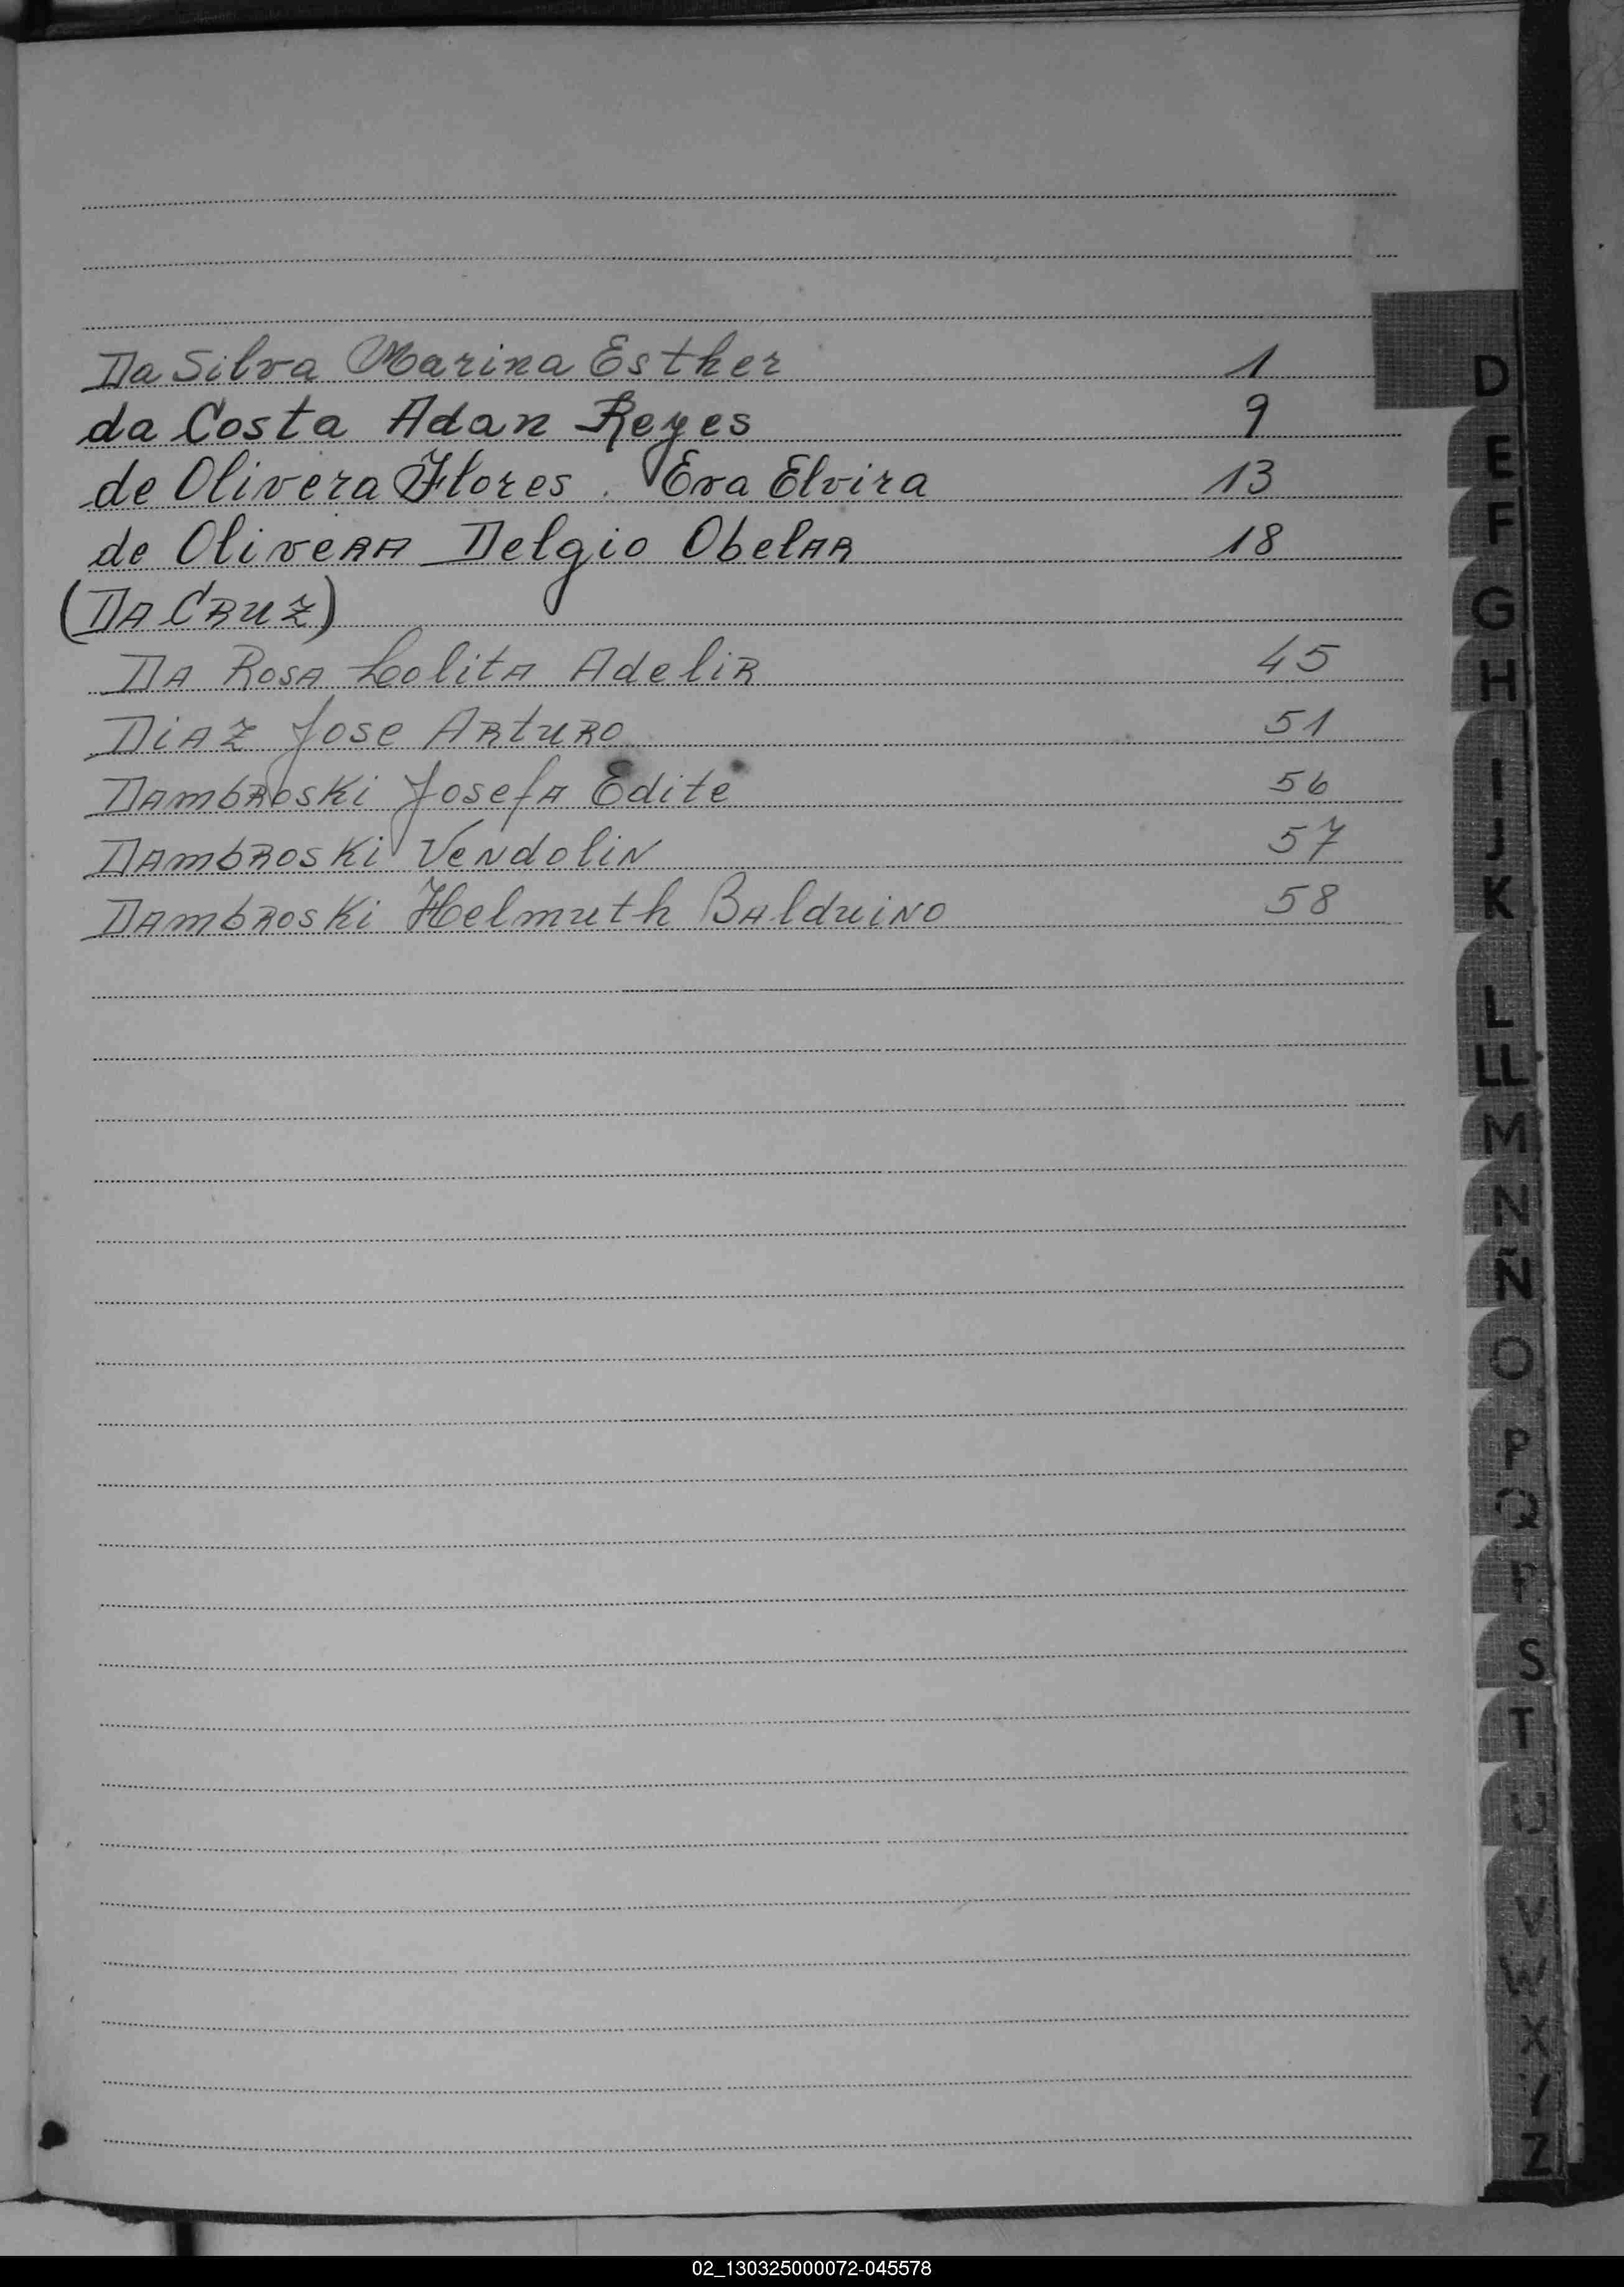 Da Silva Marina Esther 1
da Costa Adan Reyes 9
de Olivera Flores. Eva Elvira 13
de Olivera Delgio Obelar 18
(Da Cruz)
Da Rosa Lolita Adelir 45
Diaz Jose Arturo 51
Dambroski Josefa Edite 56
Dambroski Vendolin 57
Dambroski Helmuth Balduino 58
D
E
F
G
H
I
J
K
L
LL
M
N
Ñ
O
P
Q
R
S
T
U
V
W
X
Z
02_130325000072-045578